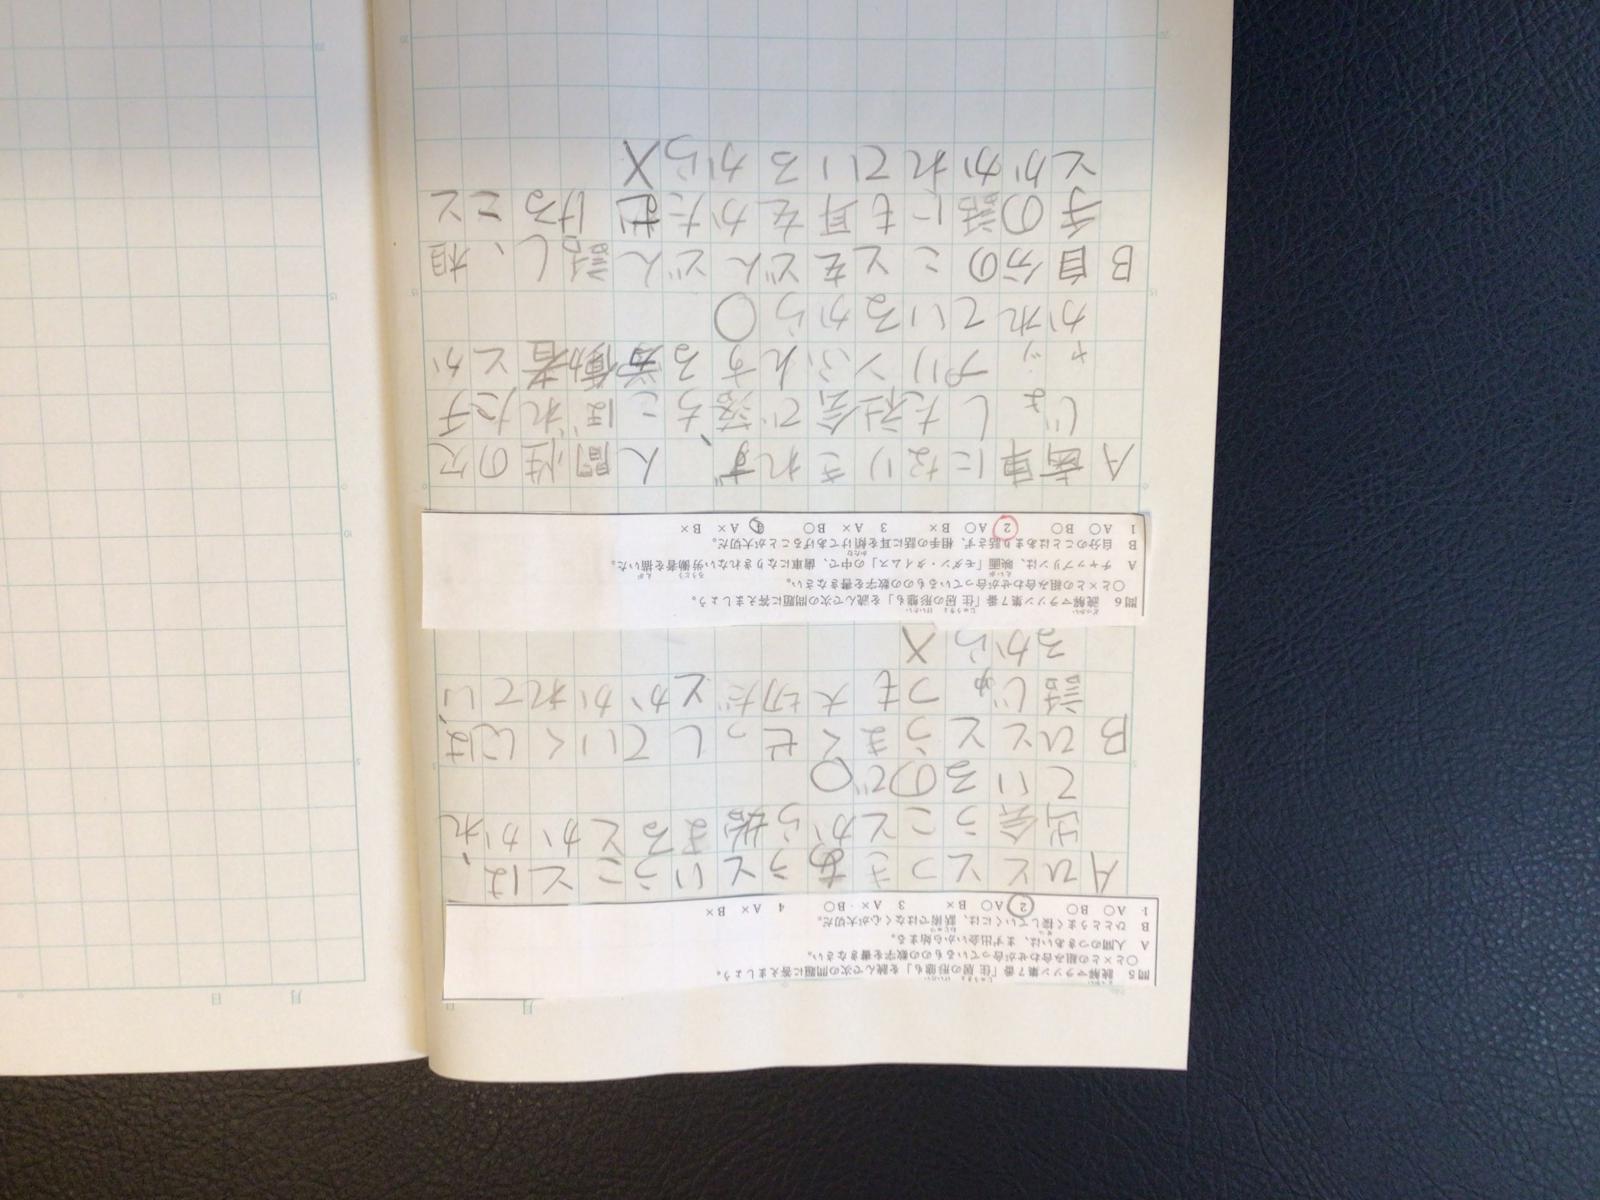 月 日
月 日
問5 読解マラソン集7番「住居の形態も」を読んで次の問題に答えましょう。
○と×との組み合わせが合っているものの数字を書きなさい。
A 人間のつきあいは、まず出会いから始まる。
B ひととうまく接していくには、話術ではなく心が大切だ。
1 A○ B○ 2 A○ B× 3 A× B○ 4 A× B×
Aひととつきあうということは、
出会うことから始まるとかかれ
ているので○
Bひととうまくせっしていくには、
話じゅつも大切だとかかれてい
るから×
問6 読解マラソン集7番「住居の形態も」を読んで次の問題に答えましょう。
○と×との組み合わせが合っているものの数字を書きなさい。
A チャップリンは、映画「モダン・タイムス」の中で、歯車になりきれない労働者を描いた。
B 自分のことはあまり話さず、相手の話に耳を傾けてあげることが大切だ。
1 A○ B○ 2 A○ B× 3 A× B○ 4 A× B×
A歯車になりきれず、人間性の欠
じょした社会で落ちこぼれたチ
ャップリンふんする労働者とか
かれているから○
B自分のことをどんどん話し、相
手の話にも耳をかたむけること
とかかれているから×